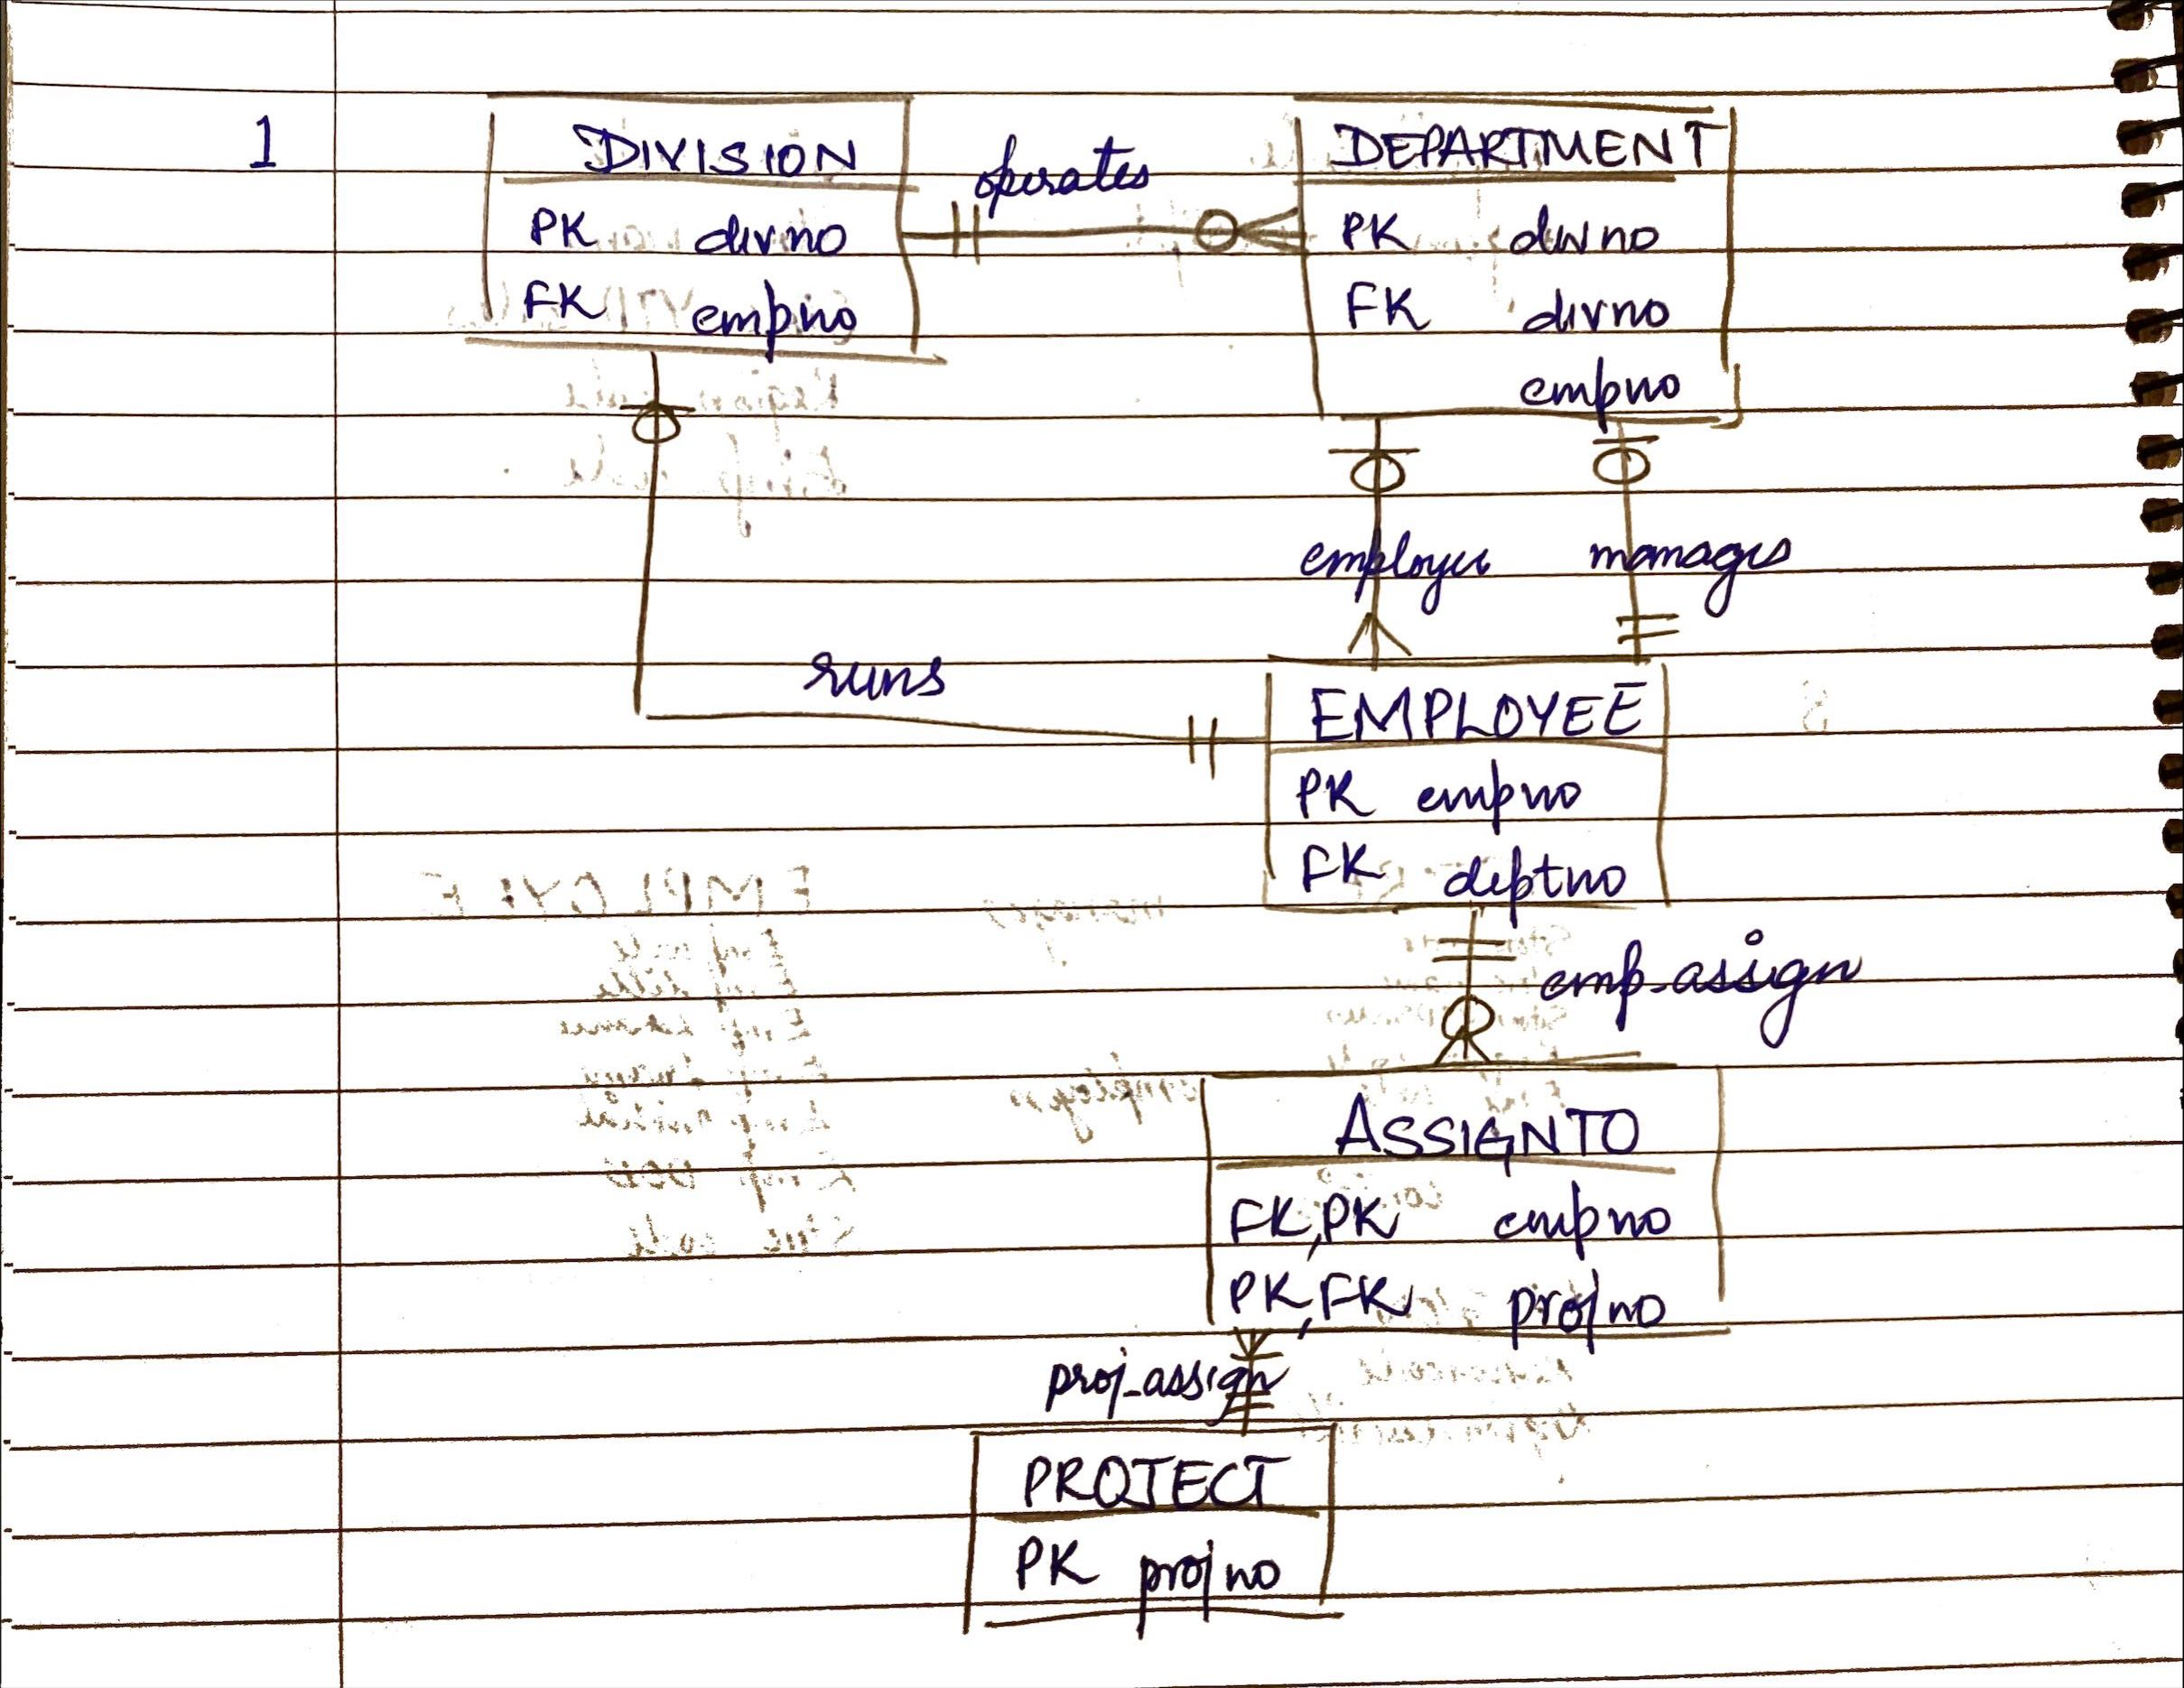 1
DIVISION
PK divno
FK empno
operates
DEPARTMENT
PK divno
FK divno
empno
employer manages
runs
EMPLOYEE
PK empno
FK deptno
emp_assign
ASSIGNTO
FK,PK empno
PK,FK projno
proj_assign
PROJECT
PK projno